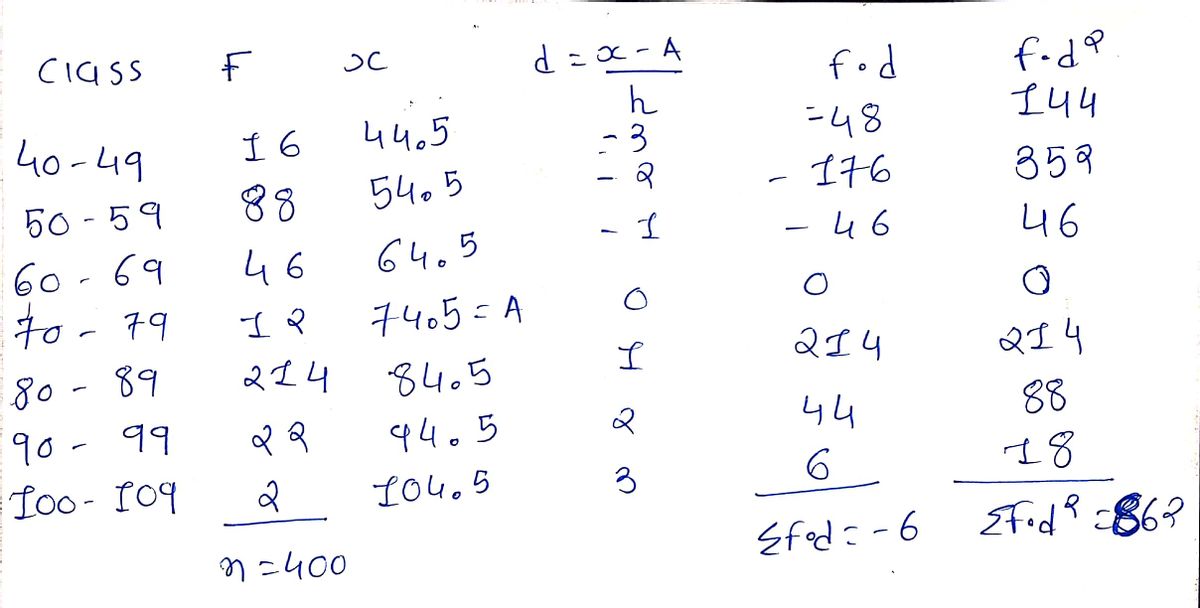 Class F x d = x - A / h f.d f.d²
40-49 16 44.5 -3 -48 144
50-59 88 54.5 -2 -176 352
60-69 46 64.5 -1 -46 46
70-79 12 74.5 = A 0 0 0
80-89 214 84.5 1 214 214
90-99 22 94.5 2 44 88
100-109 2 104.5 3 6 18
n = 400 Σf.d = -6 Σf.d² = 862